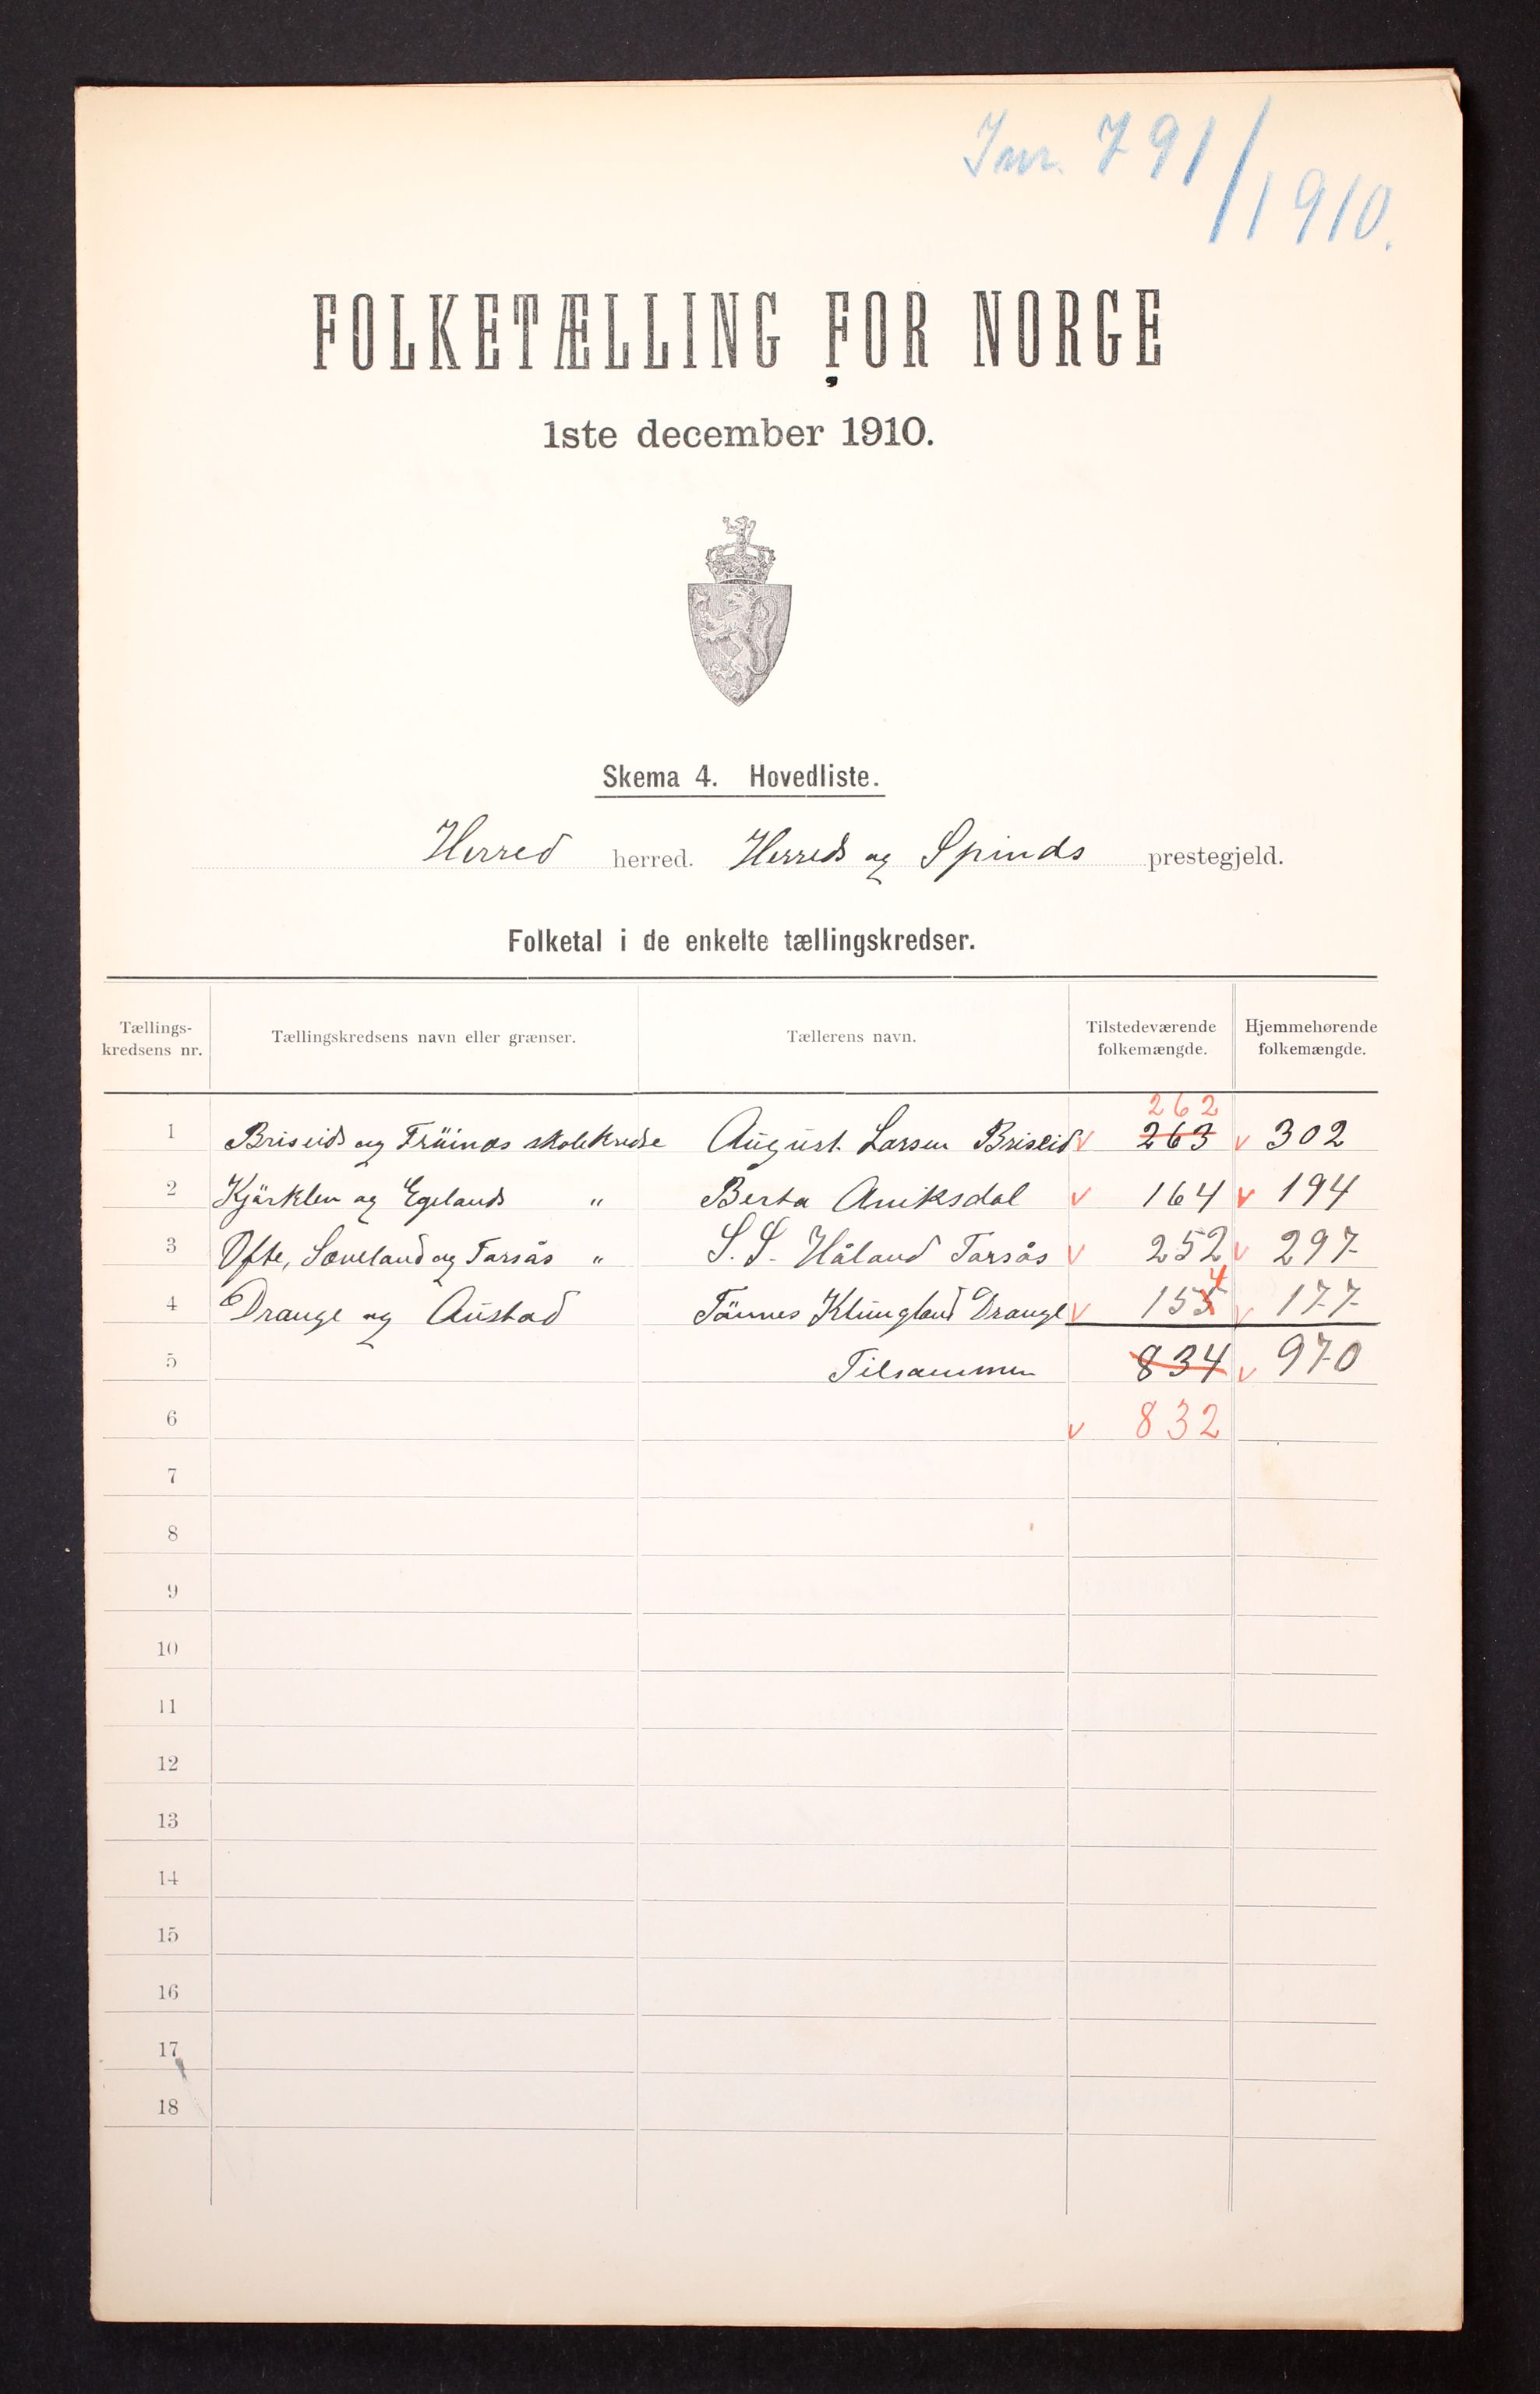 Jnr. 791/1910.
FOLKETÆLLING FOR NORGE
1ste december 1910.
Skema 4. Hovedliste.
Herred herred. Herreds og Spinds prestegjeld.
Folketal i de enkelte tællingskredser.
Tællings-kredsens nr. Tællingskredsens navn eller grænser. Tællerens navn. Tilstedeværende folkemængde. Hjemmehørende folkemængde.
262
1 Briseids og Trüinas skolekredse August Larsen Briseid v 263 v 302
2 Kjärklen og Egelands " Berta Aniksdal v 164 v 194
3 Ofte, Sæveland og Farsås " S. S. Håland Farsås v 252 v 297
4 Drange og Austad Tönnes Klungland Drange v 155 4 v 177
5 Tilsammen 834 v 970
6 v 832
7
8
9
10
11
12
13
14
15
16
17
18